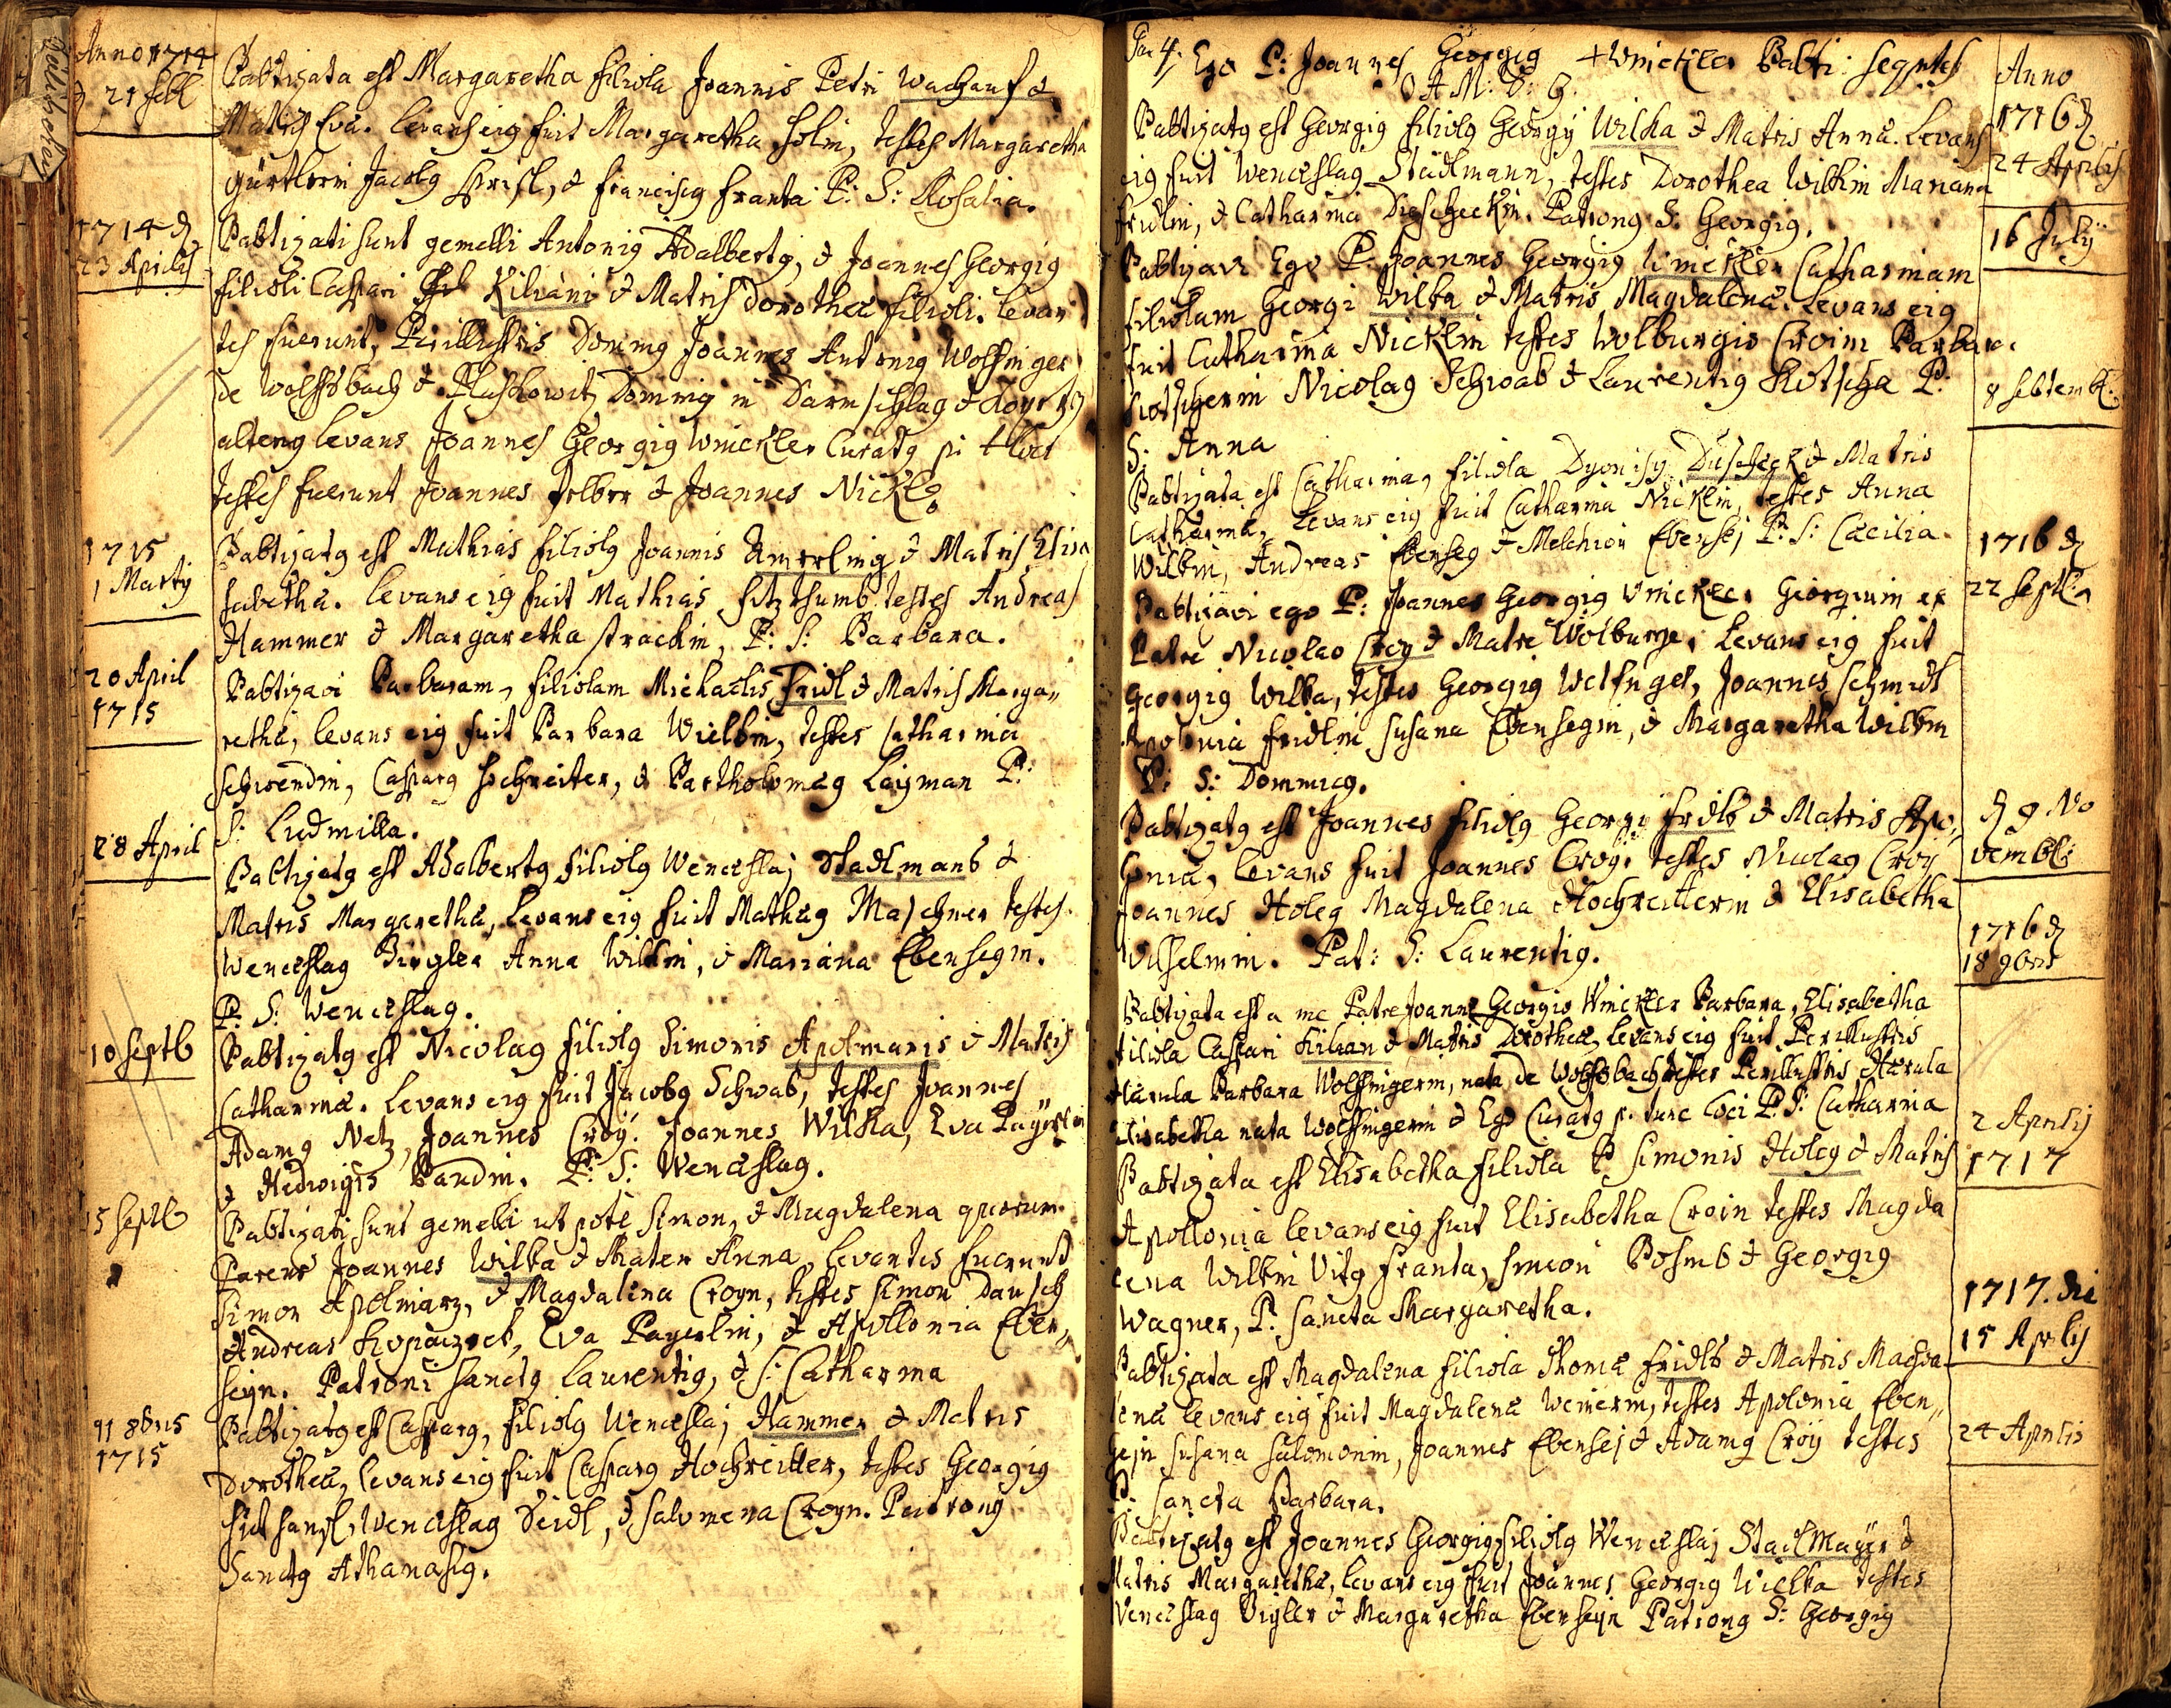 Anno 1714
21 febl
Babtizata est Margaretha filiola Joannis Petri Wachauf &
Matris Eva. levans eig fuit Margaretha Holin, testes Margaretha
Gürtlerin Jacobg & Franciscg Franta P: S: Rosalia.
1714 d
23 Aprilis
Babtizati sunt gemelli Antonig Adalbertg, & Joannes Georgig
filioli Caspari Kiliani & Matris Dorotheæ filioli. levan
tes fuerunt, Perillustris Doming Joannes Antonig Wolfinger
de Wolfsbach & Pluskowitz Dominig in Darmschlag &
alterg levans Joannes Georgig Winckler Curatg loci
testes fuerunt Joannes & Joannes Nickl
1715
1 Martÿ
Babtizatg est Mathias filiolg Joannis Amerling & Matris Elisa
sabethæ. levans eig fuit Mathias testes Andreas
Hammer & Margaretha strackin, P: S: Barbara.
20 April
1715
Babtizavi Barbaram, filiolam Michaelis Fridl & Matris Marga„
rethæ, levans eig fuit Barbara Wielkin, testes Catharina
schwendin, Casparg Hochreiter, & Bartholomæg Layman P:
S: Ludmilla.
28 April
Babtizatg est Adalbertg filiolg Wenceslaj Stadlmans &
Matris Margarethæ, levans eig fuit Mathæg Maschner testes
Wenceslag Zigler Anna Wilkin, & Mariana Ebensegin.
P: S: Wenceslag.
10 Septb
Babtizatg est Nicolag filiolg Simonis Apolmaris & Matris
Catharinæ. Levans eig fuit Jacobg Schwab, testes Joannes
Adamg Netz, Joannes Croÿ. Joannes Wilka, Eva
& Hedwigis Bandin. P: S: Wenceslag.
15 Septb
Babtizati sunt gemelli ut pote Simon, & Magdalena quorum
Parens Joannes Wilka & Mater Anna, levantes fuerunt
Simon Apolmarz, & Magdalena Croyn, testes Simon Dausch
Andreas Kopaczreck, Eva Payerlin, & Apollonia Eben„
segin. Patroni Sanctg Laurentig, & S: Catharina
11 8bris
1715
Babtizatg est Casparg, filiolg Wenceslaj Hammer & Matris
Dorotheæ, levans eig fuit Casparg Hochreitter, testes Georgig
Wenceslag Seidl, & Salomena Croyn. Patrong
Sanctg Athanasig.
Ego P: Joannes Georgig Winckler Babti: seqntes
O A M: D: G.
Anno
1716 d
24 Aprilis
Babtizatg est Georgig filiolg Georgÿ Wilka & Matris Annæ. Levans
eig fuit Wenceslag Stadlmann, testes Dorothea Wilkin Mariana
fridlin, & Catharina Duscheckin. Patrong S: Georgig.
16 Julÿ
Babtizavi Ego P: Joannes Georgig Winckler Catharinam
filiolam Georgi Wilka & Matris Magdalenæ. Levans eig
fuit Catharina Nicklin testes Wolburgis Croin Barbara
Nicolag Schwab & Laurentig Kotscha P:
S: Anna
8 Septemb:
Babtizata est Catharina, filiola Dyonisÿ Duscheck & Matris
Catharinæ, Levans eig fuit Catharina Nicklin, testes Anna
Wilkin, Andreas Ebenseg & Melchion Ebensej P: S: Cæcilia.
1716 d
22 Septbr
Babtizavi ego P: Joannes Georgig Winckler Georgium ex
Patre Nicolao Croy & Matre Wolburge, Levans eig fuit
Georgig Wilka, testes Georgig Wolfinger, Joannes Schmidt
Apolonia fridlin Susana Ebensegin, & Margaretha Wilkin
P: S: Dominicg.
d 9 No
vembb:
Babtizatg est Joannes filiolg Georgi Fridls & Matris Apo„
loniæ, levans fuit Joannes Croy. testes Nicolag Croy
Joannes Holeg Magdalena Hochreitterin & Elisabetha
Wilhelmin. Pat: S: Laurentig.
1716 d
18 9bris
Babtizata est a me Patre Joanne Georgio Winckler Barbara, Elisabetha
filiola Caspari Kilian & Matris Dorotheæ, levans eig fuit Perillustris
Barbara Wolffingerin, nata de Wolfsbach testes Perillustris
Elisabetha nata Wolffingerin & Ego Curatg p. tunc loci P: S: Catharina
2 Aprilis
1717
Babtizata est Elisabetha filiola Simonis Holeg & Matris
Apollonia levans eig fuit Elisabetha Croin testes Magda
lena Wilkin Vitg Franta, Simeon & Georgig
Wagner, P: Sancta Margaretha.
1717. die
15 Aprlis
Babtizata est Magdalena filiola Thomæ Fridls & Matris Magda
lenæ levans eig fuit Magdalena Weinerin, testes Apolonia Eben„
Susana Salomonin, Joannes Ebensej & Adamg Croÿ testes
P: Sancta Barbara.
24 Aprilis
Babtizatg est Joannes Georgig filiolg Wenceslaj Stadlmayer &
Matris Margarethæ, levans eig fuit Joannes Georgig Wielka testes
Wenceslag Zigler & Margaretha Patrong S: Georgig